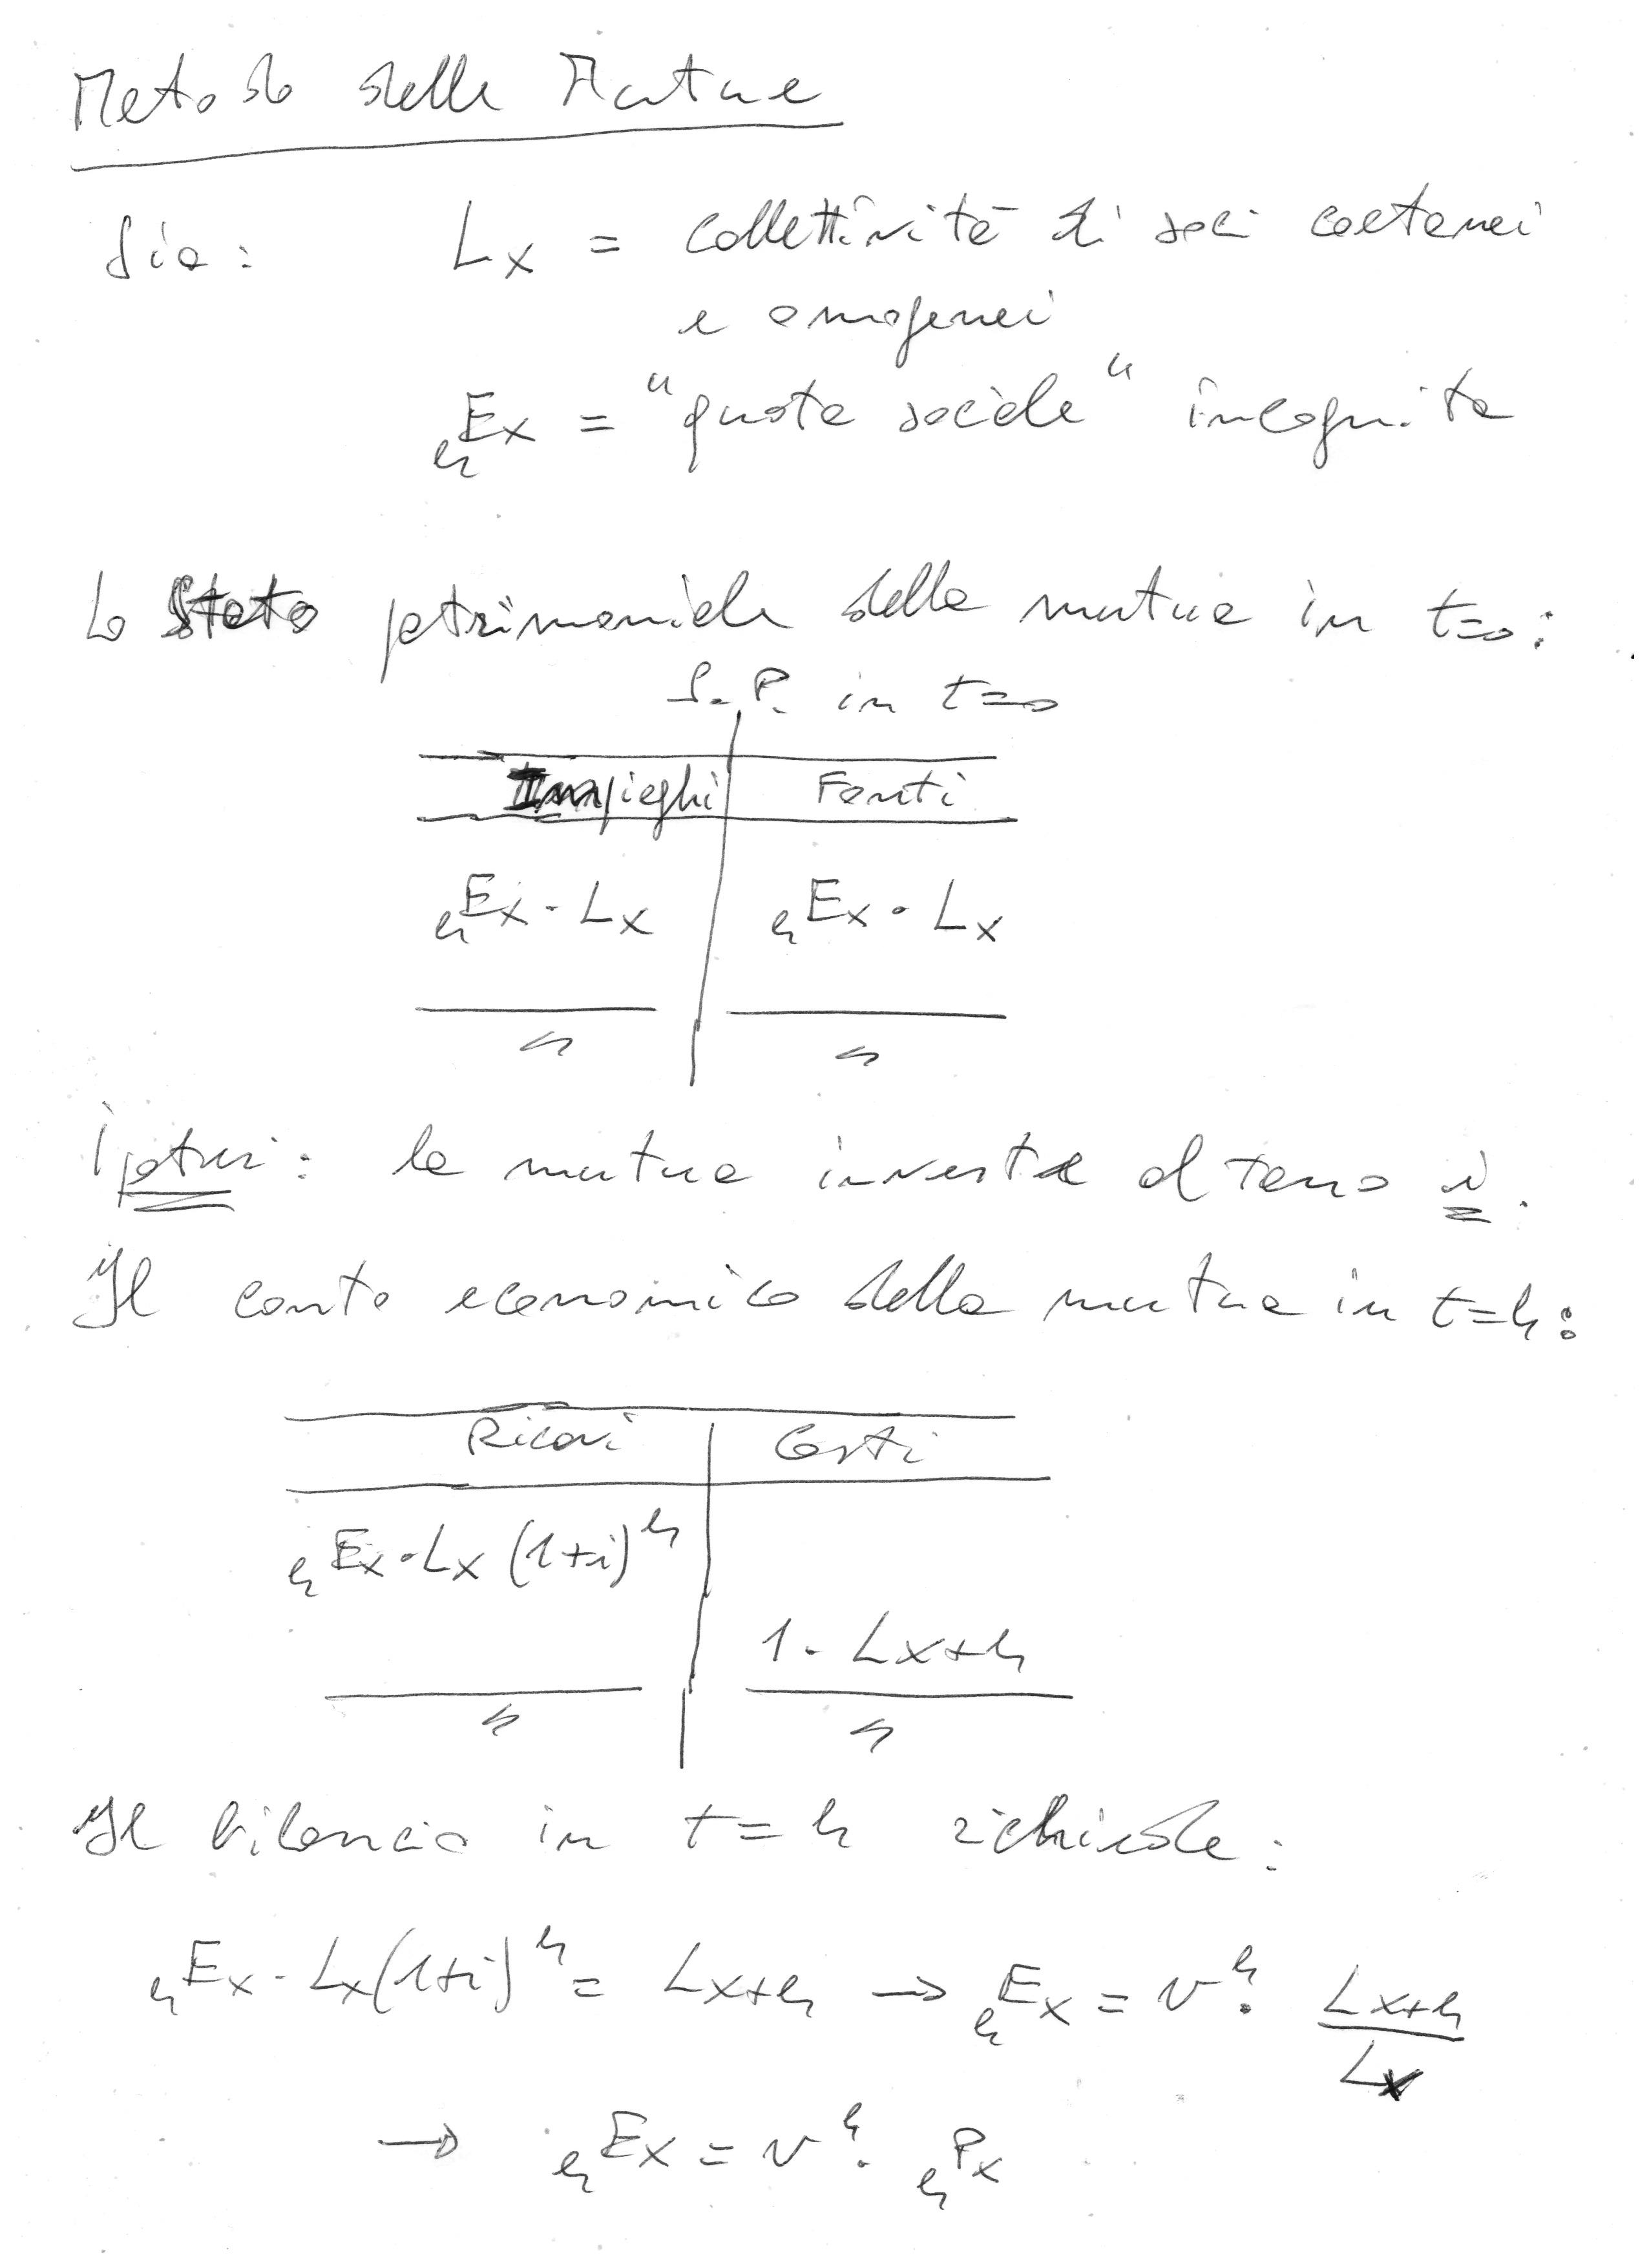 Metodo della Mutua
Sia: Lx = collettività di soci coetanei
e omogenei
hEx = "quota sociale" incognita
Lo Stato patrimoniale della mutua in t=0:
S.P. in t=0
Impieghi Fonti
hEx · Lx hEx · Lx
Ipotesi: la mutua investe al tasso i.
Il conto economico della mutua in t=h:
Ricavi Costi
hEx · Lx (1+i)^h
1 · Lx+h
Il bilancio in t=h richiede:
hEx · Lx(1+i)^h = Lx+h → hEx = v^h · Lx+h
Lx
→ hEx = v^h · hPx